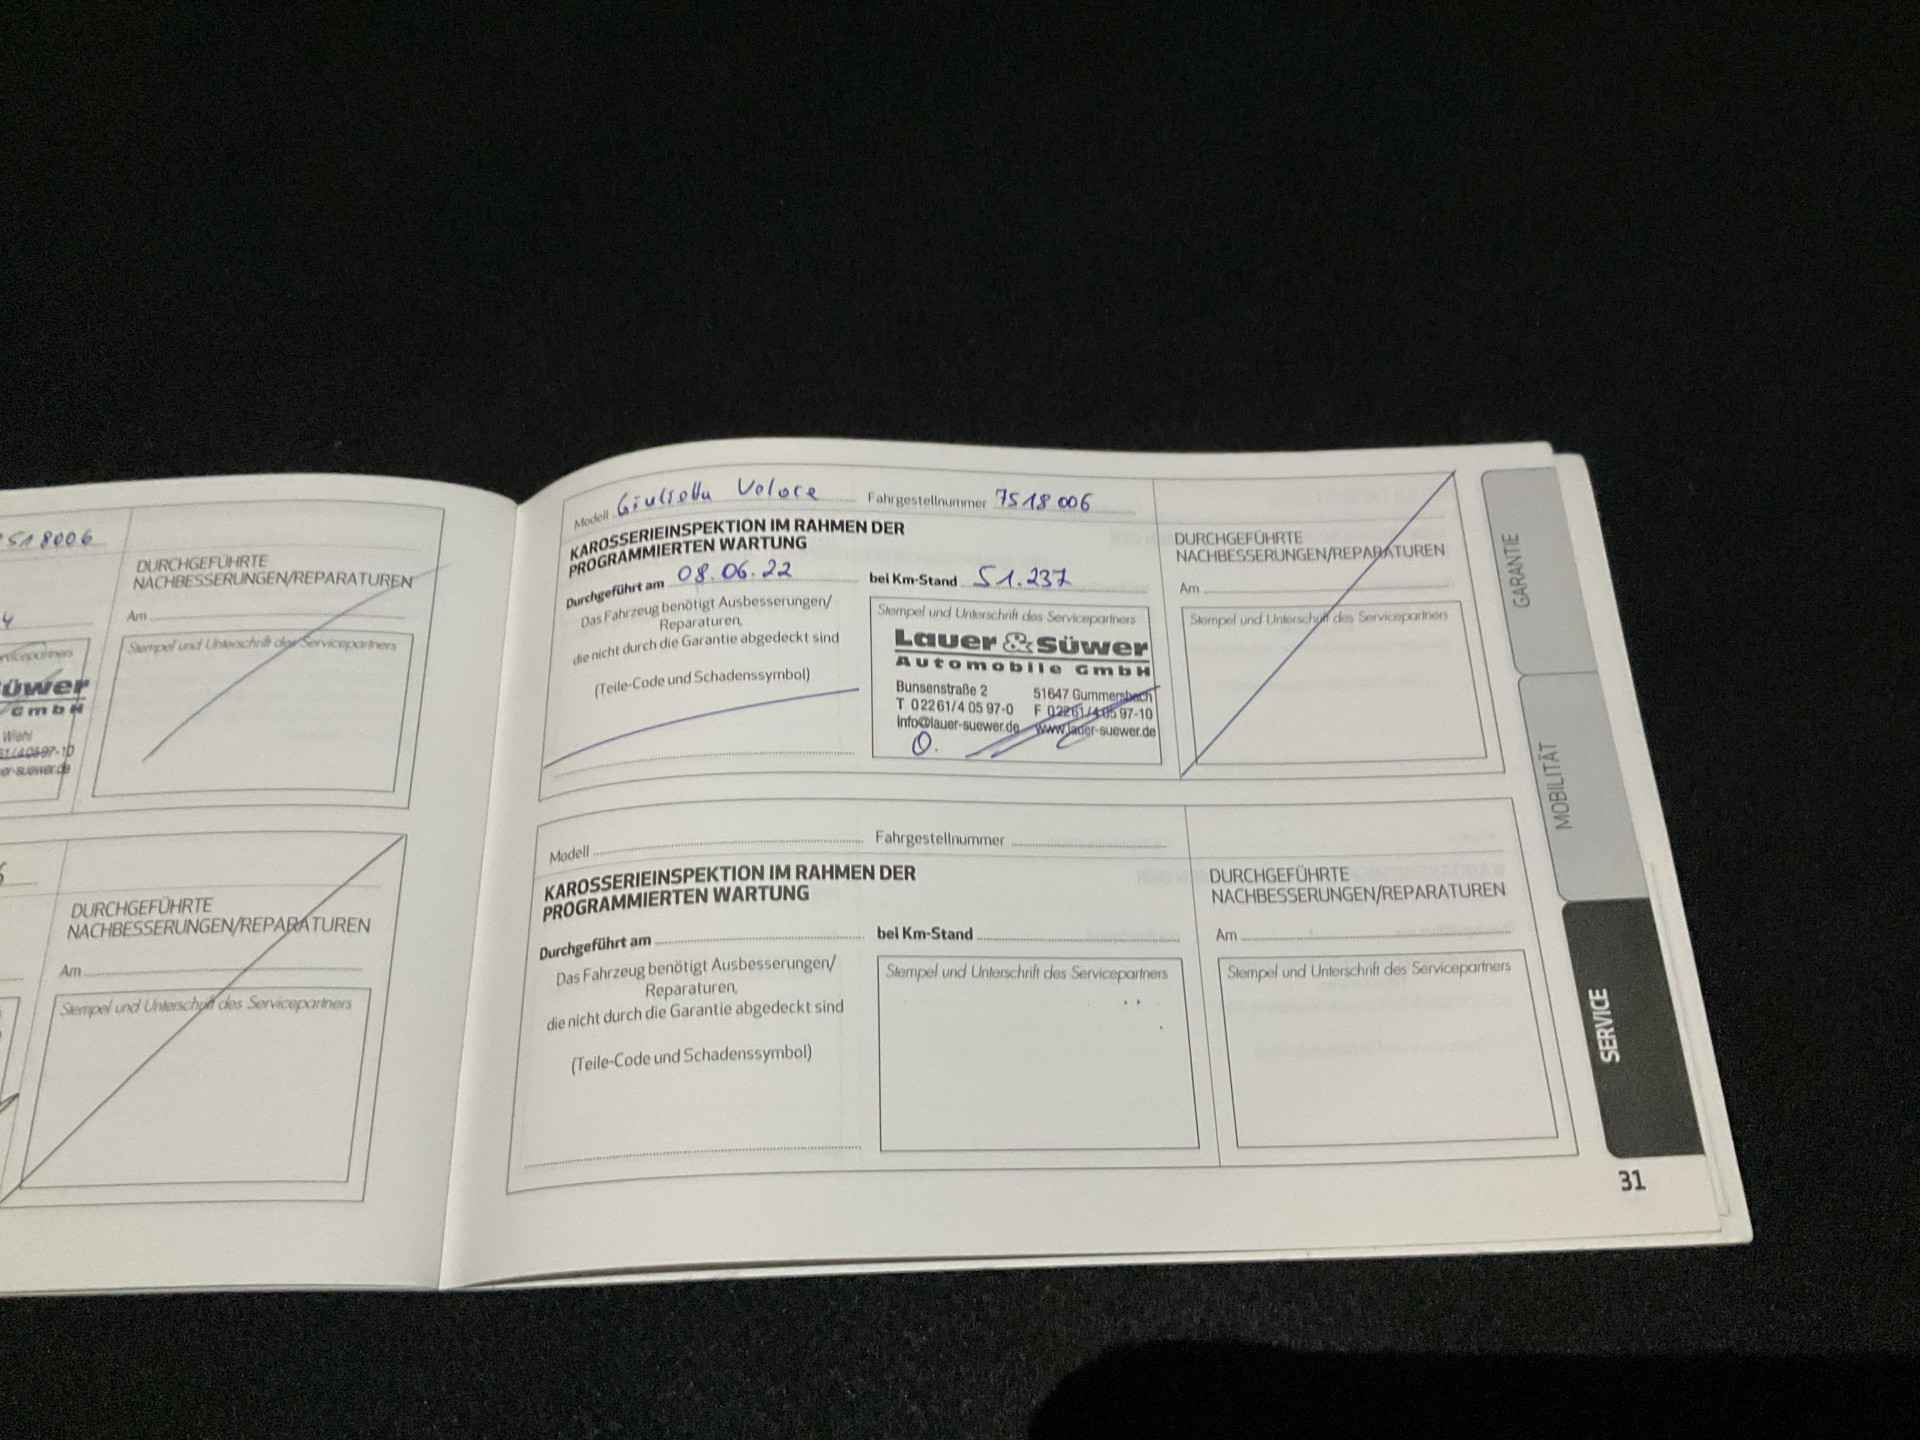 518006
DURCHGEFÜHRTE
NACHBESSERUNGEN/REPARATUREN
Am
Stempel und Unterschrift des Servicepartners
üwer
GmbH
Wiehl
er-suewer.de
DURCHGEFÜHRTE
NACHBESSERUNGEN/REPARATUREN
Am
Stempel und Unterschrift des Servicepartners
Modell Giulietta Veloce Fahrgestellnummer 7518006
KAROSSERIEINSPEKTION IM RAHMEN DER
PROGRAMMIERTEN WARTUNG
Durchgeführt am 08.06.22 bei Km-Stand 51.237
Das Fahrzeug benötigt Ausbesserungen/
Reparaturen,
die nicht durch die Garantie abgedeckt sind
(Teile-Code und Schadenssymbol)
Stempel und Unterschrift des Servicepartners
Lauer & Süwer
Automobile GmbH
Bunsenstraße 2 51647 Gummersbach
T 02261/4 05 97-0 F 02261/4 05 97-10
info@lauer-suewer.de www.lauer-suewer.de
DURCHGEFÜHRTE
NACHBESSERUNGEN/REPARATUREN
Am
Stempel und Unterschrift des Servicepartners
Modell Fahrgestellnummer
KAROSSERIEINSPEKTION IM RAHMEN DER
PROGRAMMIERTEN WARTUNG
Durchgeführt am bei Km-Stand
Das Fahrzeug benötigt Ausbesserungen/
Reparaturen,
die nicht durch die Garantie abgedeckt sind
(Teile-Code und Schadenssymbol)
Stempel und Unterschrift des Servicepartners
DURCHGEFÜHRTE
NACHBESSERUNGEN/REPARATUREN
Am
Stempel und Unterschrift des Servicepartners
GARANTIE
MOBILITÄT
SERVICE
31